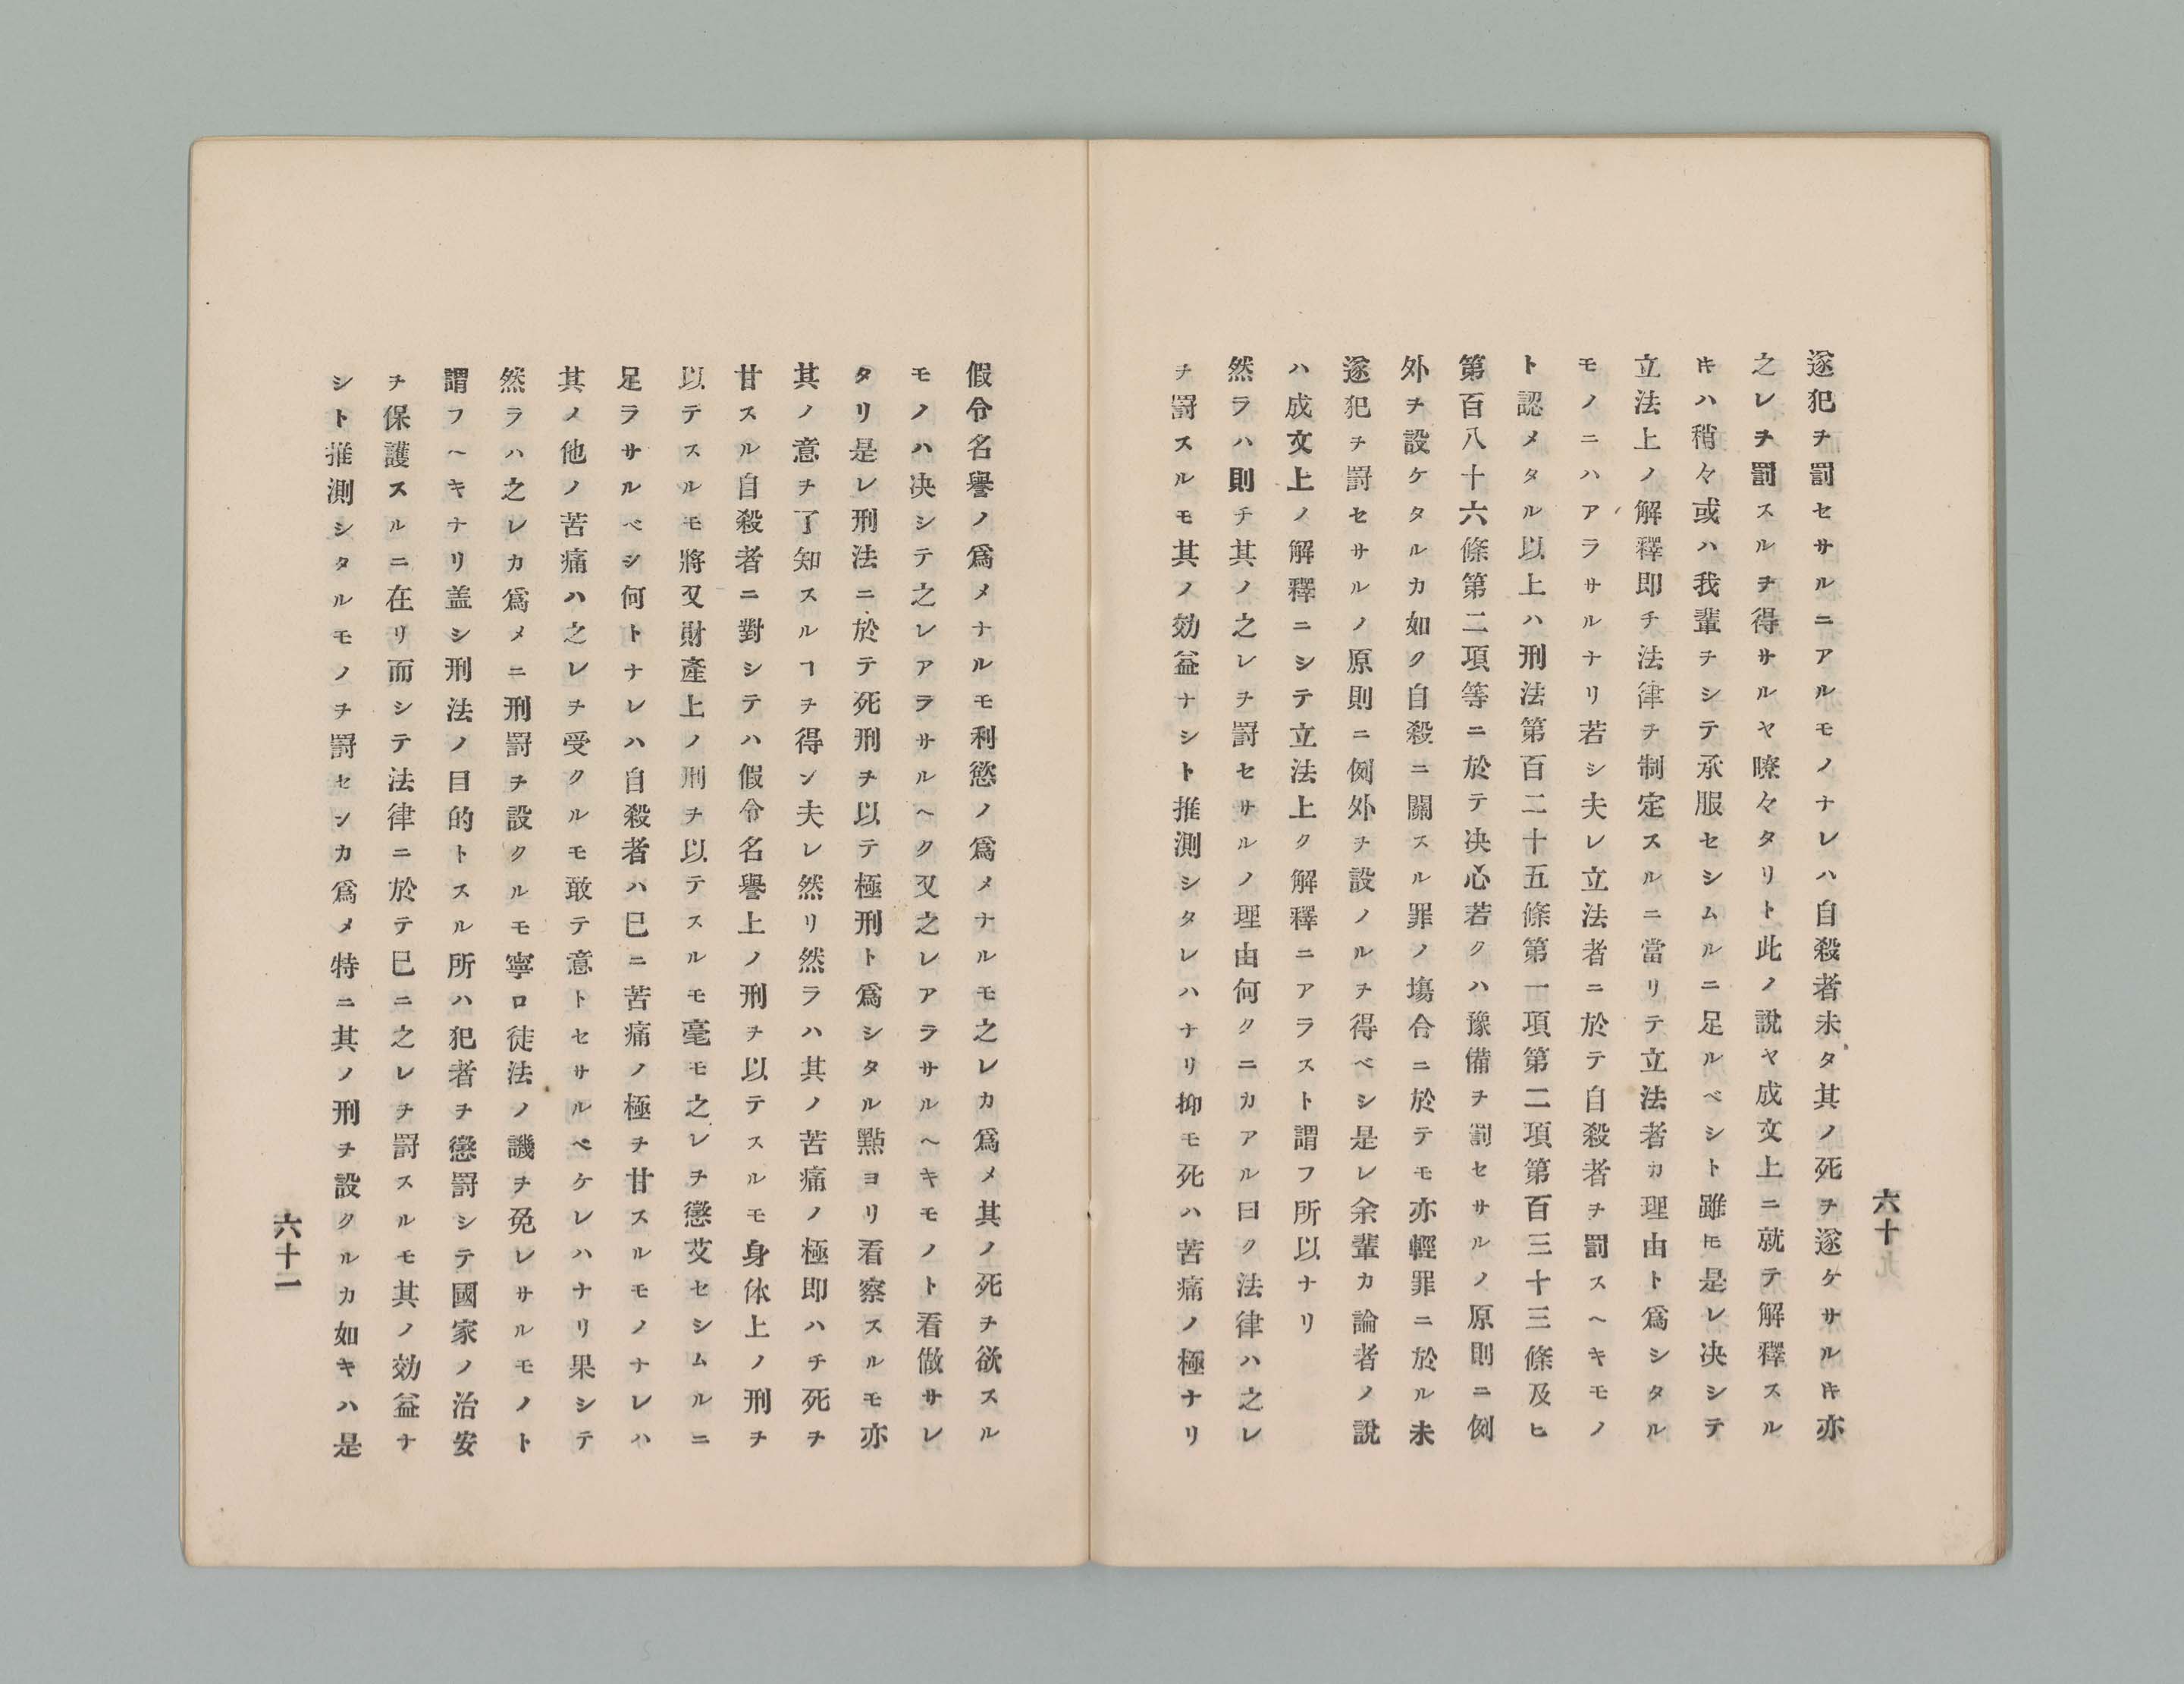 六十
遂犯ヲ罰セサルニアルモノナレハ自殺者未タ其ノ死ヲ遂ケサルㇳキ亦
之レヲ罰スルヲ得サルヤ瞭々タリト此ノ說ヤ成文上ニ就テ解釋スル
ㇳキハ稍々或ハ我輩ヲシテ承服セシムルニ足ルベシト雖𪜈是レ决シテ
立法上ノ解釋即チ法律ヲ制定スルニ當リテ立法者カ理由ト爲シタル
モノニハアラサルナリ若シ夫レ立法者ニ於テ自殺者ヲ罰スヘキモノ
ト認メタル以上ハ刑法第百二十五條第一項第二項第百三十三條及ヒ
第百八十六條第二項等ニ於テ决心若クハ豫備ヲ罰セサルノ原則ニ例
外ヲ設ケタルカ如ク自殺ニ關スル罪ノ塲合ニ於テモ亦輕罪ニ於ル未
遂犯ヲ罰セサルノ原則ニ例外ヲ設ノルヲ得ベシ是レ余輩カ論者ノ說
ハ成文上ノ解釋ニシテ立法上ク解釋ニアラスト謂フ所以ナリ
然ラハ則チ其ノ之レヲ罰セサルノ理由何クニカアル曰ク法律ハ之レ
ヲ罰スルモ其ノ効益ナシト推測シタレハナリ抑モ死ハ苦痛ノ極ナリ
假令名譽ノ爲メナルモ利慾ノ爲メナルモ之レカ爲メ其ノ死ヲ欲スル
モノハ决シテ之レアラサルヘク又之レアラサルヘキモノト看做サレ
タリ是レ刑法ニ於テ死刑ヲ以テ極刑ト爲シタル點ヨリ看察スルモ亦
其ノ意ヲ了知スルヿヲ得ン夫レ然リ然ラハ其ノ苦痛ノ極即ハチ死ヲ
甘スル自殺者ニ對シテハ假令名譽上ノ刑ヲ以テスルモ身体上ノ刑ヲ
以テスルモ將又財產上ノ刑ヲ以テスルモ毫モ之レヲ懲艾セシムルニ
足ラサルベシ何トナレハ自殺者ハ巳ニ苦痛ノ極ヲ甘スルモノナレハ
其ノ他ノ苦痛ハ之レヲ受クルモ敢テ意トセサルベケレハナリ果シテ
然ラハ之レカ爲メニ刑罰ヲ設クルモ寧ロ徒法ノ譏ヲ免レサルモノト
謂フヘキナリ盖シ刑法ノ目的トスル所ハ犯者ヲ懲罰シテ國家ノ治安
ヲ保護スルニ在リ而シテ法律ニ於テ巳ニ之レヲ罰スルモ其ノ効益ナ
シト推測シタルモノヲ罰センカ爲メ特ニ其ノ刑ヲ設クルカ如キハ是
六十一